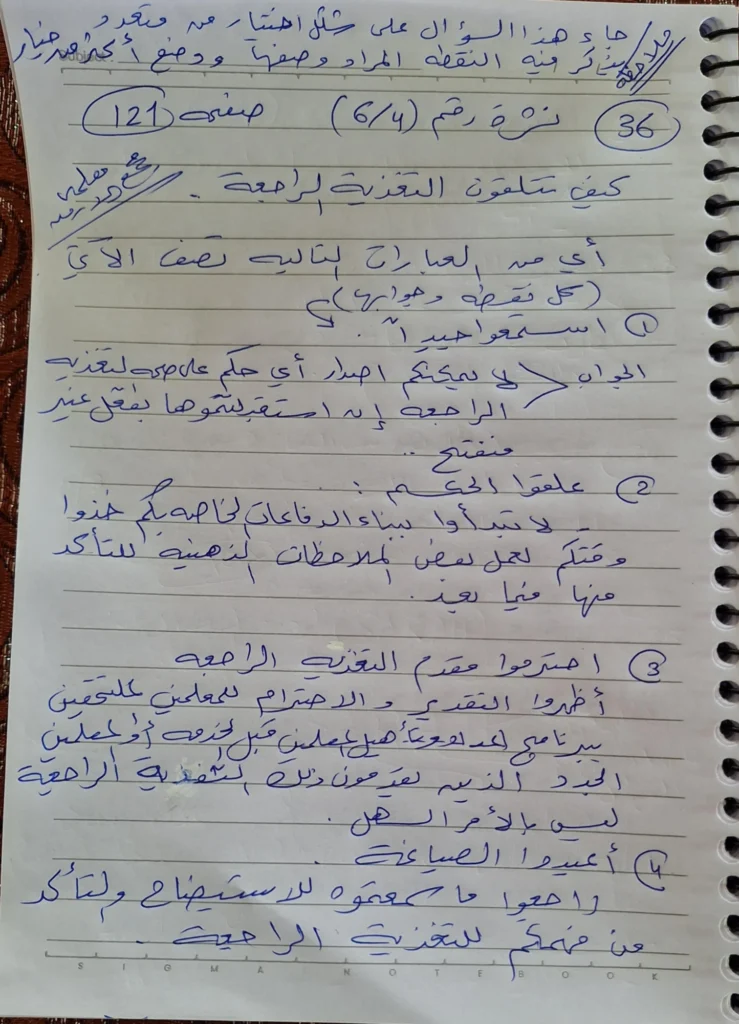 ملاحظة
جاء هذا السؤال على شكل اختيار من متعدد
يذكر فيه النقطه المراد وصفها ووضع أكثر من خيار
36 نشرة رقم (6/4) صفحه 121
كيف تتلقون التغذية الراجعة .
أي من العبارات التاليه تصف الآتي
(كل نقطه وجوابها) ؟
1 استمعوا جيداً .
الجواب < لا يمكنكم اصدار أي حكم على صحه التغذيه
الراجعه إن استقبلتموها بفعل غير
منفتح ..
2 علقوا الحكم :
- لا تبدأوا ببناء الدفاعات الخاصه بكم خذوا
وقتكم لعمل بعض الملاحظات الذهنية للتأكد
منها فيما بعد .
3 احترموا مقدم التغذيه الراجعه
أظهروا التقدير والاحترام للمعلمين الملتحقين
ببرنامج اعداد وتأهيل المعلمين قبل الخدمه أو المعلمين
الجدد الذين يقدمون ذلك التغذية الراجعة
ليس بالأمر السهل .
4 أعيدوا الصياغة .
راجعوا ما سمعتموه للاستيضاح ولتأكد
من فهمكم للتغذية الراجعة .
SIGMA NOTEBOOK